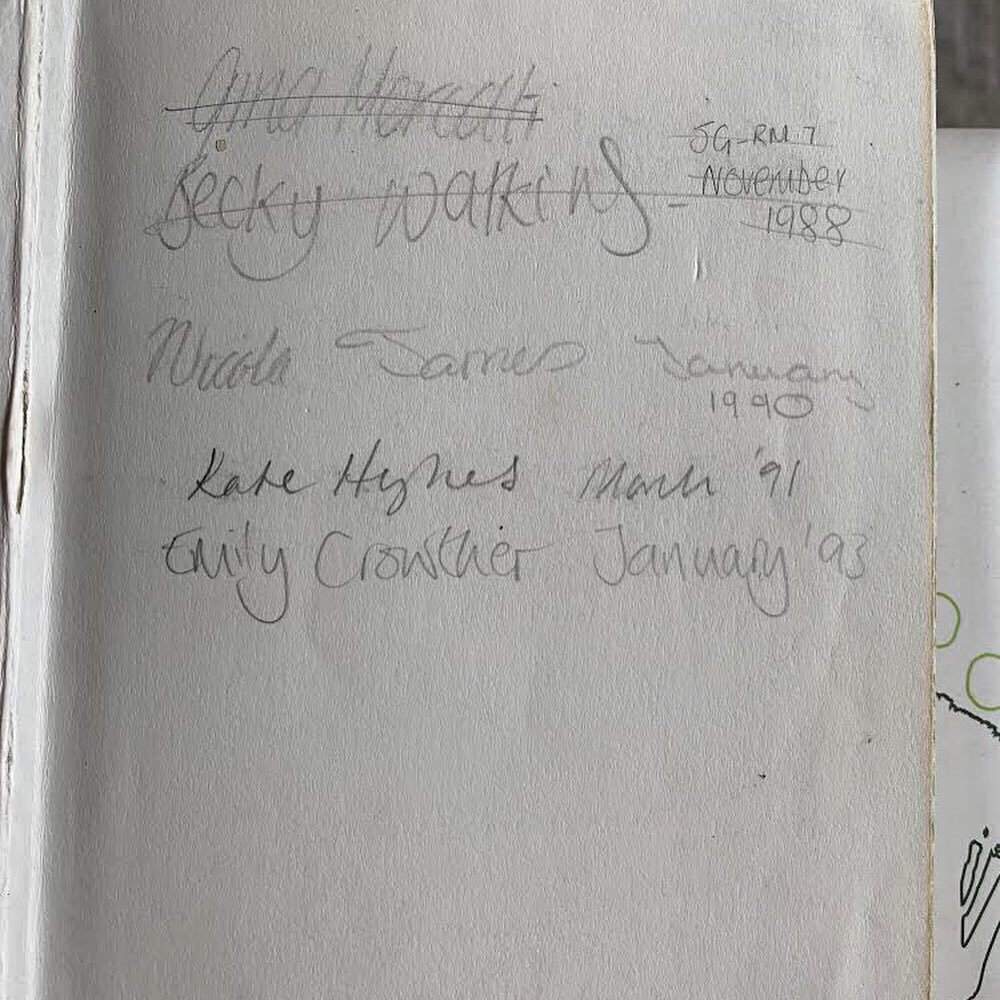 Anna Meredith
JG-RM 7
Becky Watkins - November
1988
Nicola James January
1990
Kate Hughes March '91
Emily Crowther January '93